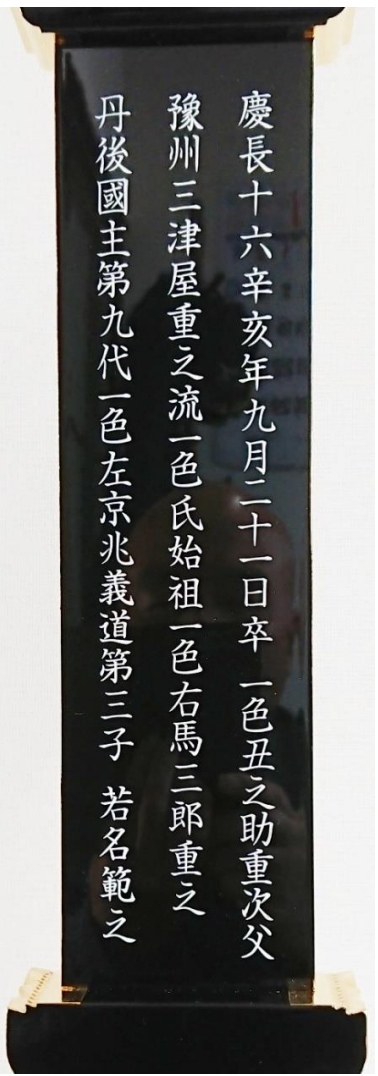 慶長十六辛亥年九月二十一日卒　一色丑之助重次父
豫州三津屋重之流一色氏始祖一色右馬三郎重之
丹後國主第九代一色左京兆義道第三子　若名範之